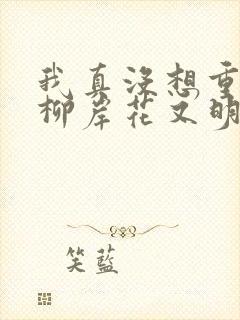 我真没想重
柳岸花又明
笑蓝